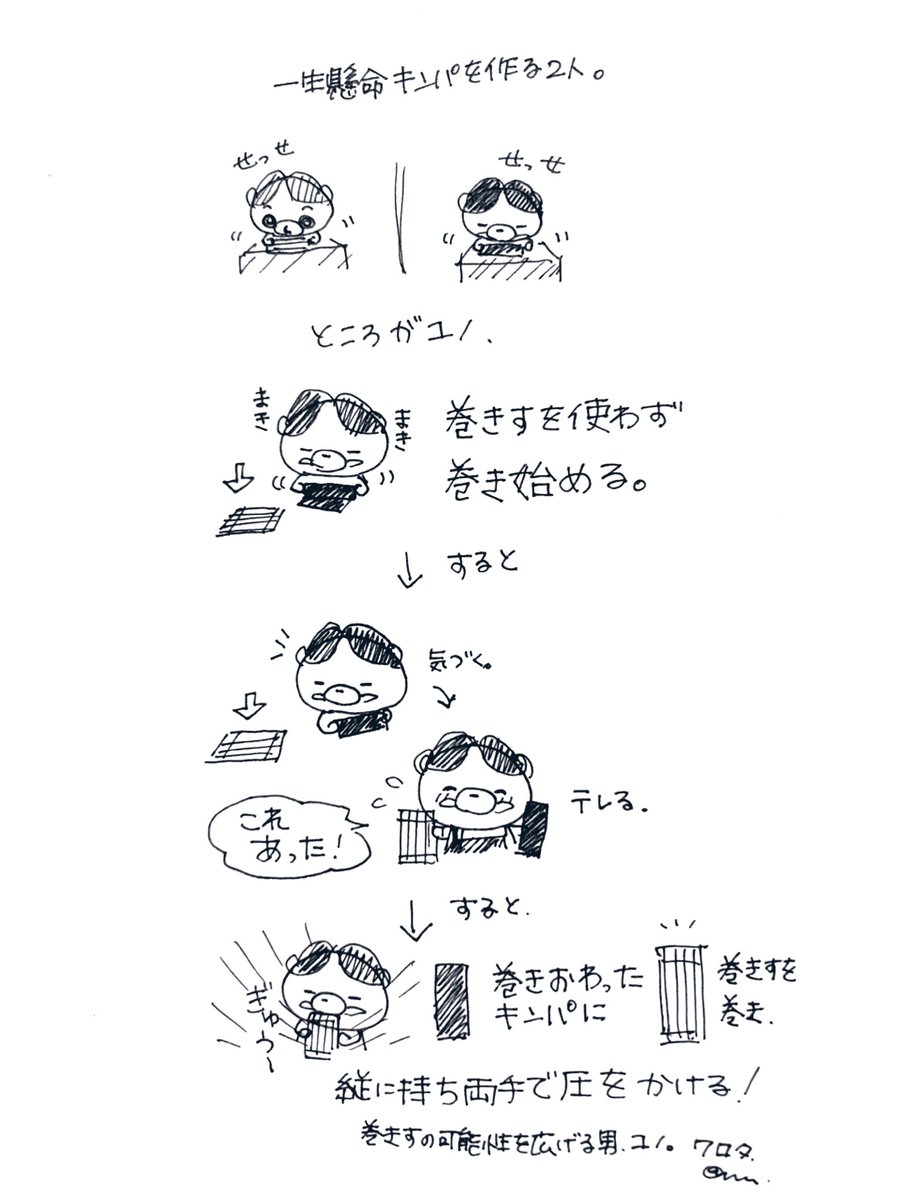 一生懸命キンパを作る2人。
せっせ
せっせ
ところがユノ、
まき
まき
巻きすを使わず
巻き始める。
すると
気づく。
これ
あった!
テレる。
すると、
ぎゅうー
巻きおわった
キンパに
巻きすを
巻き、
縦に持ち両手で圧をかける!
巻きすの可能性を広げる男、ユノ。ワロタ